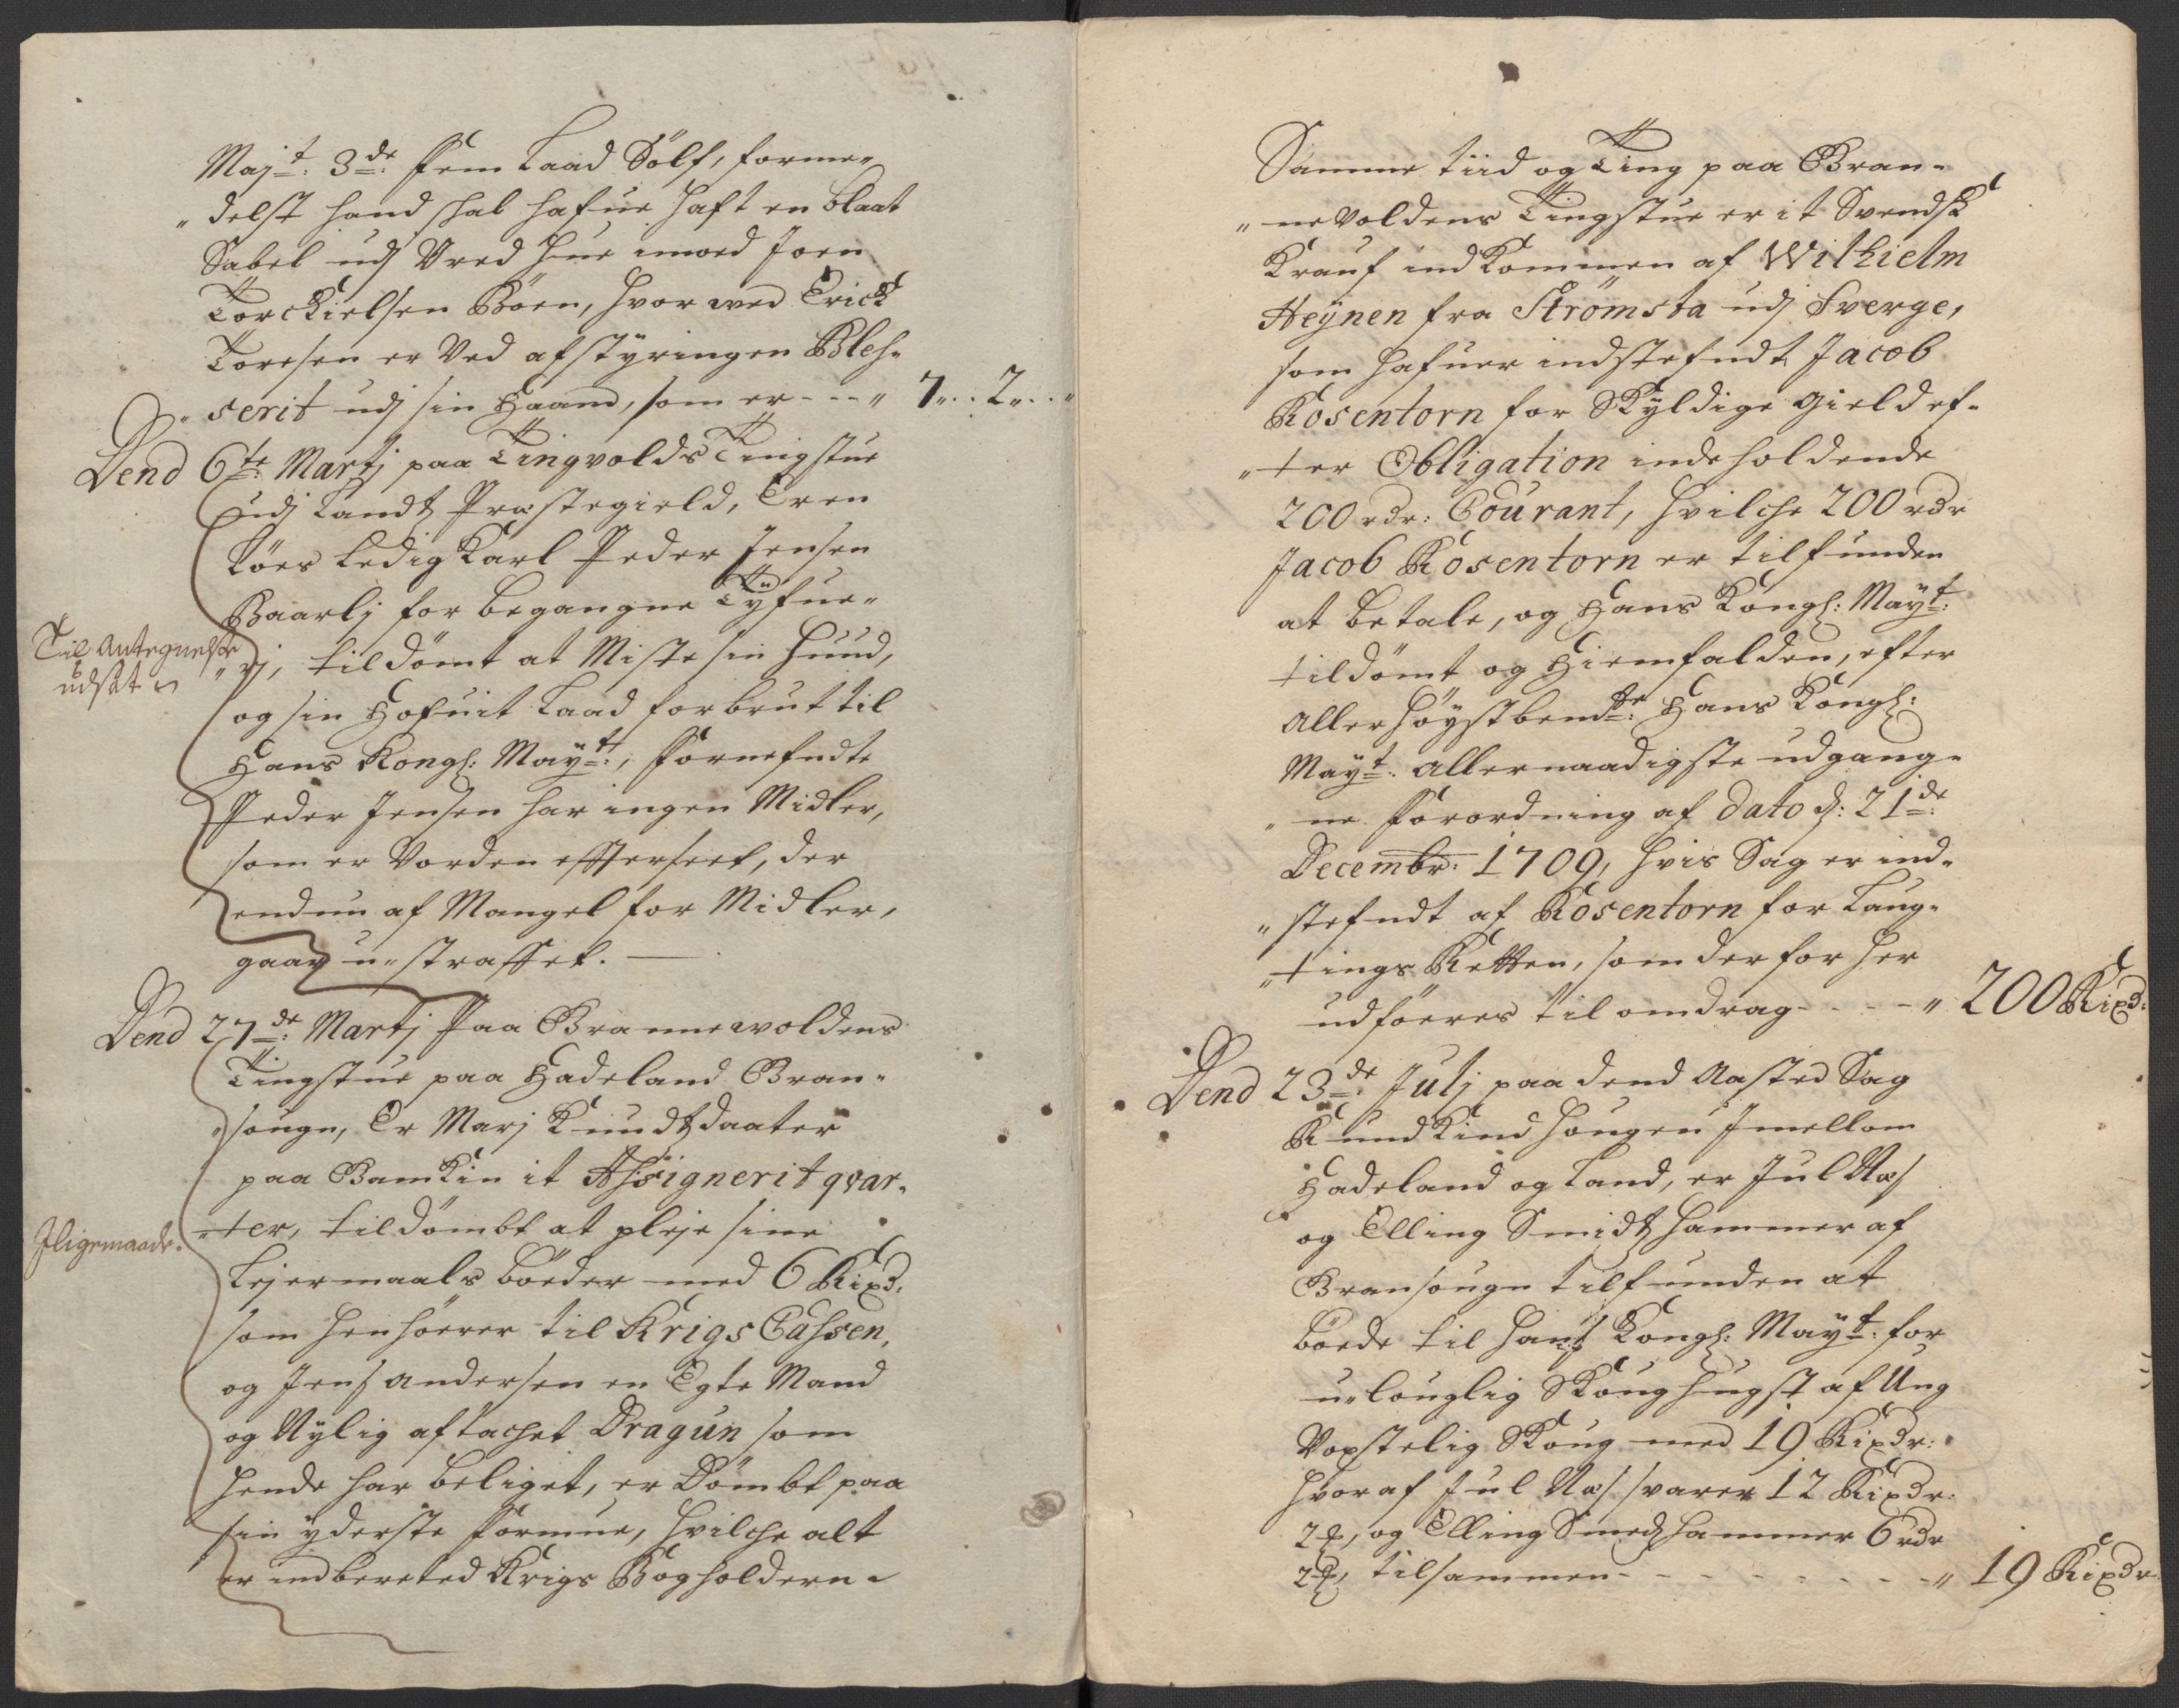 Majt: 3de: Fem Laad Sølf, forme„
„delst hand skal hafue haft en blaat
Sabel udj Vred Hue imod Joen
Torckielsen Böen, hvor ved Erick
Toresen er ved afstÿringen Bles„
„serit udj sin Haand, som er - - - „ 7„. . 2„. . „
Dend 6te Martj paa Tingvolds Tingstue
udj Landtz Prestegield, Er en
Löes Ledig Karl Peder Jensen
Baarlj for begangne Tÿfue„
Til Antegnelse
udsat
„rj, tildömt at Miste sin Huud,
og sin Hofuit Laad forbrut til
Hans Kongl: Maÿtt:, Fornefndte
Peder Jensen har ingen Midler,
som er Vorden effterseet, der
endnu af Mangel for Midler,
gaar u-straffet. —
Dend 27de: Martj Paa Brannewoldens
Tingstue paa Hadeland Bran„
„sougn, Er Marj Knudtzdaater
paa Bamkin it Assignerit qvar„
Iligemaade.
„ter, tildömbt at pleje sine
Lejermaals böeder med 6 Rixd.
som henhöerer til Krigs Cassen,
og Jens Andersen en Egte Mand
og Nÿlig aftachet Dragun som
hende har beliget, er Dömbt paa
sin ÿderste Formue, hvilche alt
er indberetted Krigs Bogholderen

Samme tiid og Ting paa Bran„
„nevoldens Tingstue er it Svendsk
Krauf indkommen af Wilhielm
Heÿnen fra Strömsta udj Sverge,
som hafuer indstefndt Jacob
Rosentorn for Skÿldige gield ef„
„ter Obligation indeholdende
200 rdr: Courant, hvilche 200 rdr
Jacob Rosentorn er tilfunden
at betale, og Hans Kongl: Maÿt:
tildömt og Hiemfalden, efter
Allerhöÿstbemdte: Hans Kongl:
Maÿt: allernaadigste udgang„
„ne Forordning af dato d: 21de:
Decembr: 1709, hvis Sag er ind„
„stefndt af Rosentorn for Laug„
„tings Retten, som derfor her
udföeres til omdrag - - - - „ 200 Rixd:
Dend 23de: Julj paa dend Aasted Sag
Rundkind hougen Jmellom
Hadeland og Land, er Jul Næs
og Elling Smidtz hammer af
Bransougn tilfunden at
böede til Hans Kongl: Maÿt: for
u-louglig Skoughugst af Ung
Voxstelig Skoug med 19 Rixdr:
hvoraf Jul Næs svarer 12 Rixdr:
2 , og Elling Smedhammer 6 rdr
2 , tilsammen - - - - - - - - „ 19 Rixdr